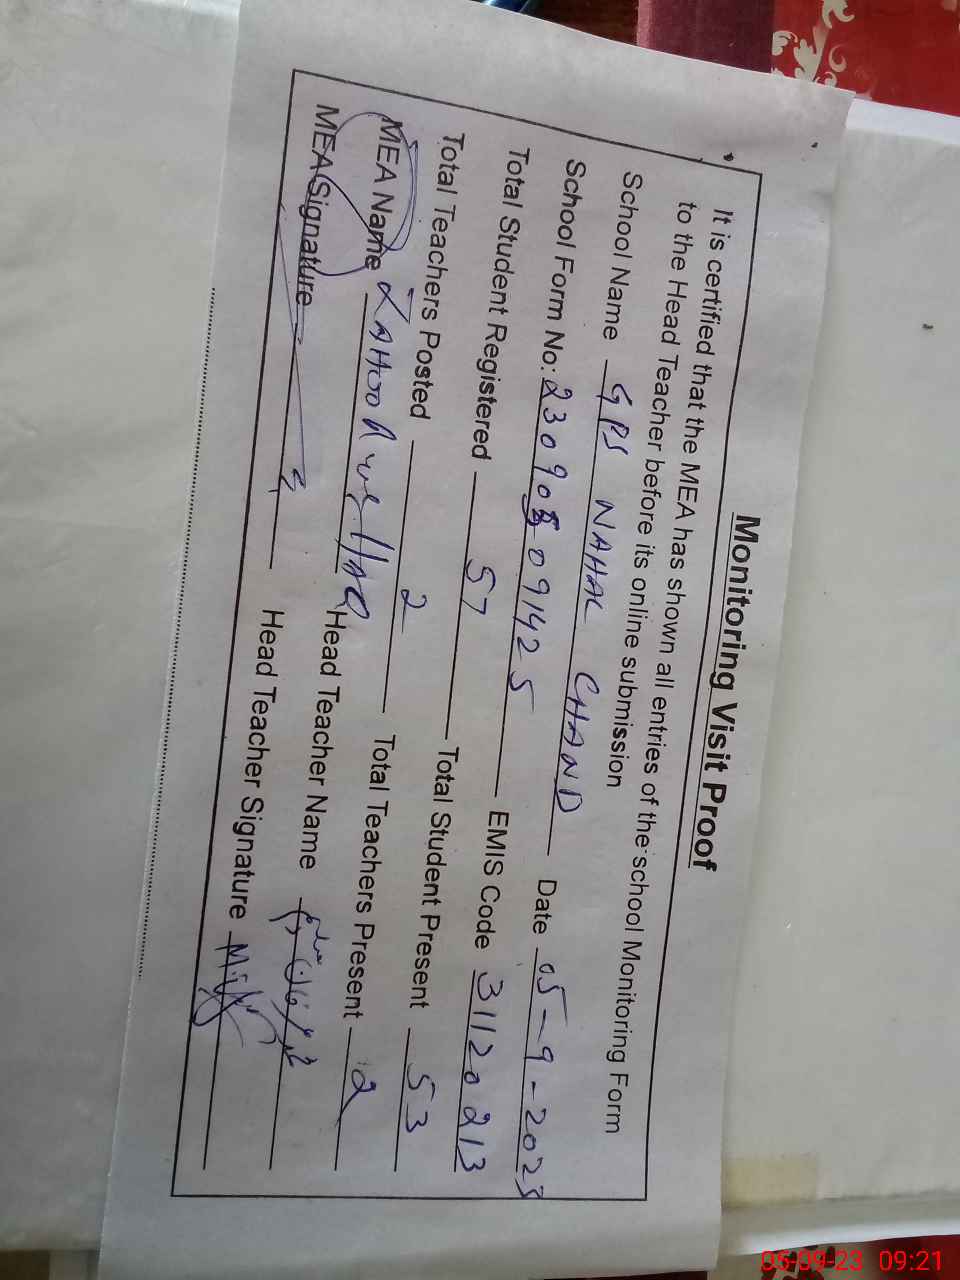 Monitoring Visit Proof
It is certified that the MEA has shown all entries of the school Monitoring Form
to the Head Teacher before its online submission
School Name GPS NAHAL CHAND Date 05-9-2023
School Form No: 230905091425 EMIS Code 31120213
Total Student Registered 57 Total Student Present 53
Total Teachers Posted 2 Total Teachers Present 2
MEA Name ZAHOOR UL HAQ Head Teacher Name
MEA Signature Head Teacher Signature
05-09-23 09:21